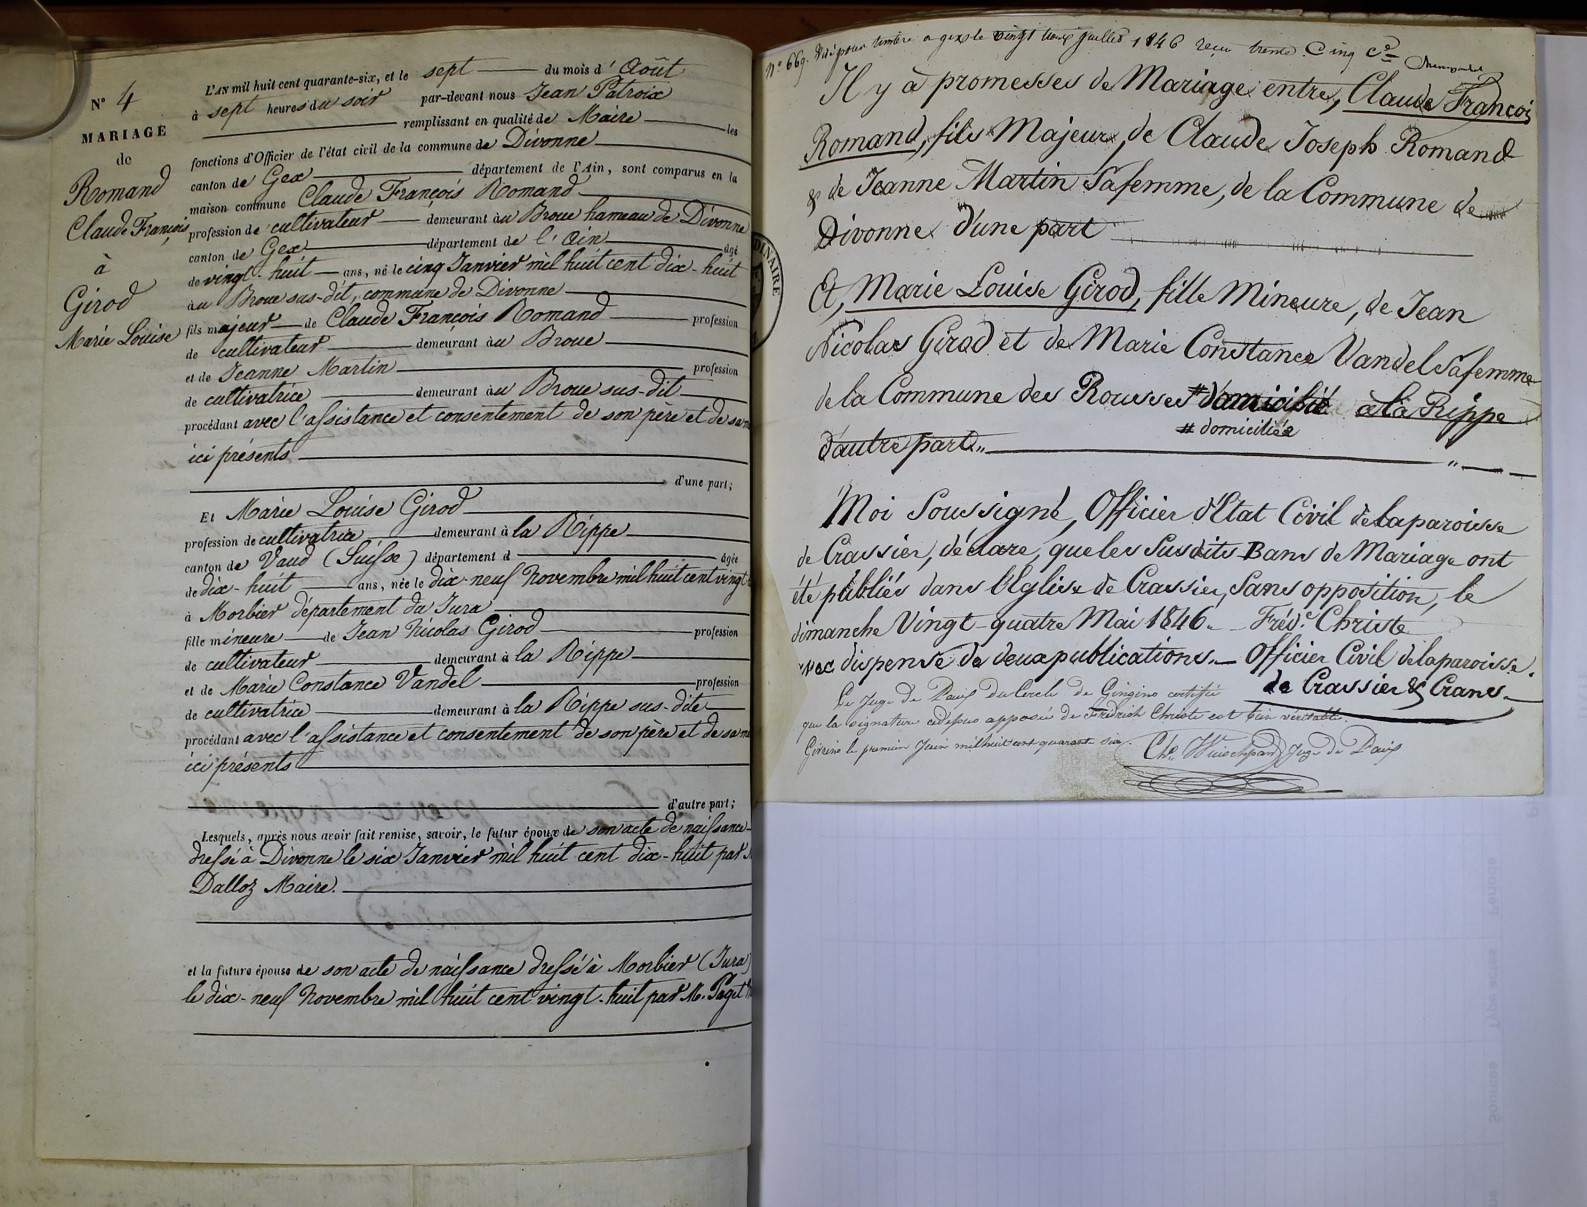 N° 4
MARIAGE
de
Romand
Claude François,
à
Girod
Marie Louise
L'AN mil huit cent quarante-six, et le sept du mois d'Août
à sept heures du soir par-devant nous Jean Patroix
remplissant en qualité de Maire les
fonctions d'Officier de l'état civil de la commune de Divonne
canton de Gex département de l'Ain, sont comparus en la
maison commune Claude François Romand
profession de cultivateur demeurant au Broue hameau de Divonne
canton de Gex département de l'Ain âgé
de vingt-huit ans, né le cinq Janvier mil huit cent dix-huit
au Broue sus-dit, commune de Divonne
fils majeur de Claude François Romand profession
de cultivateur demeurant au Broue
et de Jeanne Martin profession
de cultivatrice demeurant au Broue sus-dit
procédant avec l'assistance et consentement de son père et de sa
ici présents
d'une part;
Et Marie Louise Girod
profession de cultivatrice demeurant à la Rippe
canton de Vaud (Suisse) département d âgée
de dix-huit ans, née le dix-neuf Novembre mil huit cent vingt
à Morbier département du Jura
fille mineure de Jean Nicolas Girod profession
de cultivateur demeurant à la Rippe
et de Marie Constance Vandel profession
de cultivatrice demeurant à la Rippe sus-dite
procédant avec l'assistance et consentement de son père et de sa
ici présents
d'autre part;
Lesquels, après nous avoir fait remise, savoir, le futur époux de son acte de naissance
dressé à Divonne le six Janvier mil huit cent dix-huit par
Dalloz Maire.
et la future épouse de son acte de naissance dressé à Morbier (Jura)
le dix-neuf Novembre mil huit cent vingt-huit par M. Paget
N° 669. Visé pour timbre a gex le vingt deux juillet 1846 reçu trente Cinq Ces
Il y a promesses de Mariage entre, Claude François
Romand, fils Majeur, de Claude Joseph Romand
& de Jeanne Martin Safemme, de la Commune de
Divonne d'une part
Et, Marie Louise Girod, fille Mineure, de Jean
Nicolas Girod et de Marie Constance Vandel Safemme
de la Commune des Rousses # domicilié à la Rippe
# domiciliée
d'autre part
Moi Soussigné, Officier d'Etat Civil de la paroisse
de Crassier, déclare, que les Susdits Bans de Mariage ont
été publiés dans l'Eglise de Crassier, Sans opposition, le
dimanche Vingt-quatre Mai 1846. Frédc Christe
avec dispense de deux publications. Officier Civil de la paroisse
de Crassier & Crans
Le Juge de Paix du Cercle de Gingins certifie
que la signature cidessus apposée de Fredrich Christe est bien véritable.
Gingins le premier Juin mil huit cent quarante six. Juge de Paix
DINAIRE